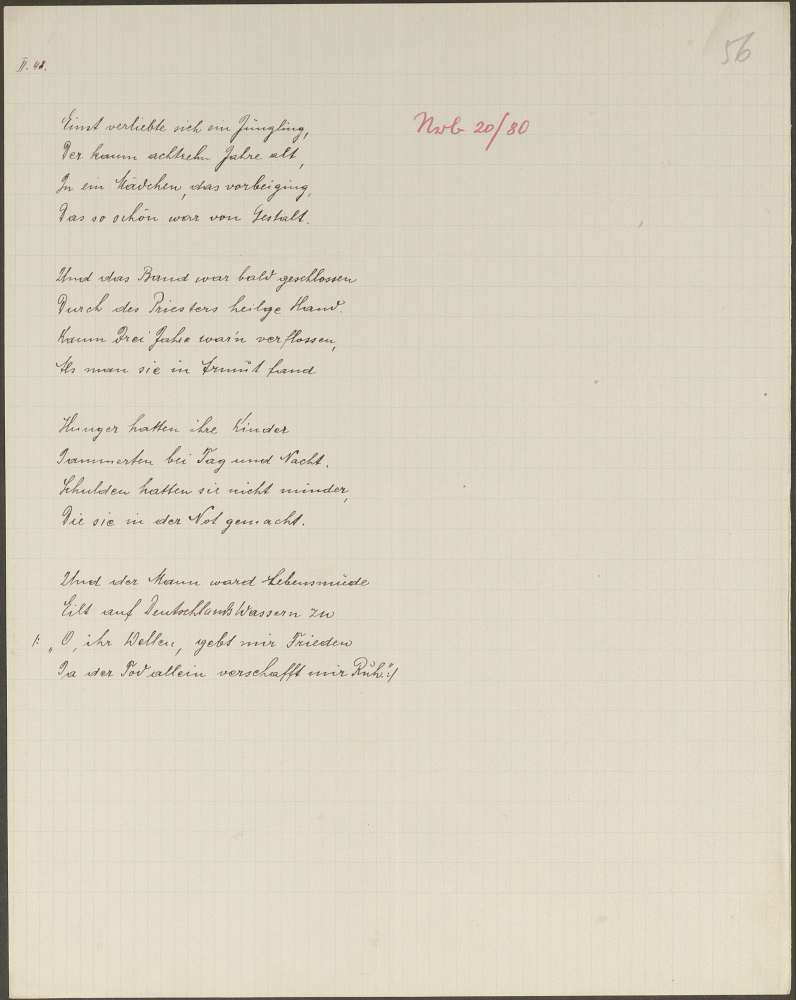 56
II. 48.
Nwb 20/80
Einst verliebte sich ein Jüngling,
Der kaum achtzehn Jahre alt,
In ein Mädchen, das vorbeiging,
Das so schön war von Gestalt.
Und das Band war bald geschlossen
Durch des Priesters heilge Hand.
Kaum drei Jahre war'n verflossen,
Als man sie in Armut fand
Hunger hatten ihre Kinder
Jammerten bei Tag und Nacht.
Schulden hatten sie nicht minder,
Die sie in der Not gemacht.
Und der Mann ward Lebensmüde
Eilt auf Deutschlands Wassern zu
/: „O, ihr Wellen, gebt mir Frieden
Ja der Tod allein verschafft mir Ruh.":/